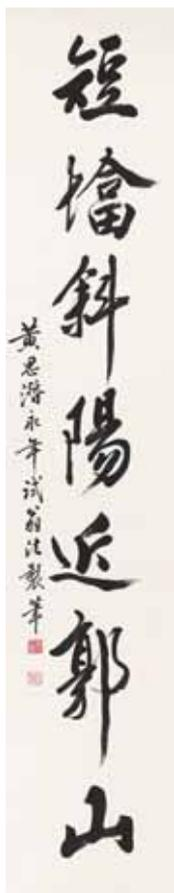 短墻斜陽近郭山
黃思潛永年試翁法製筆